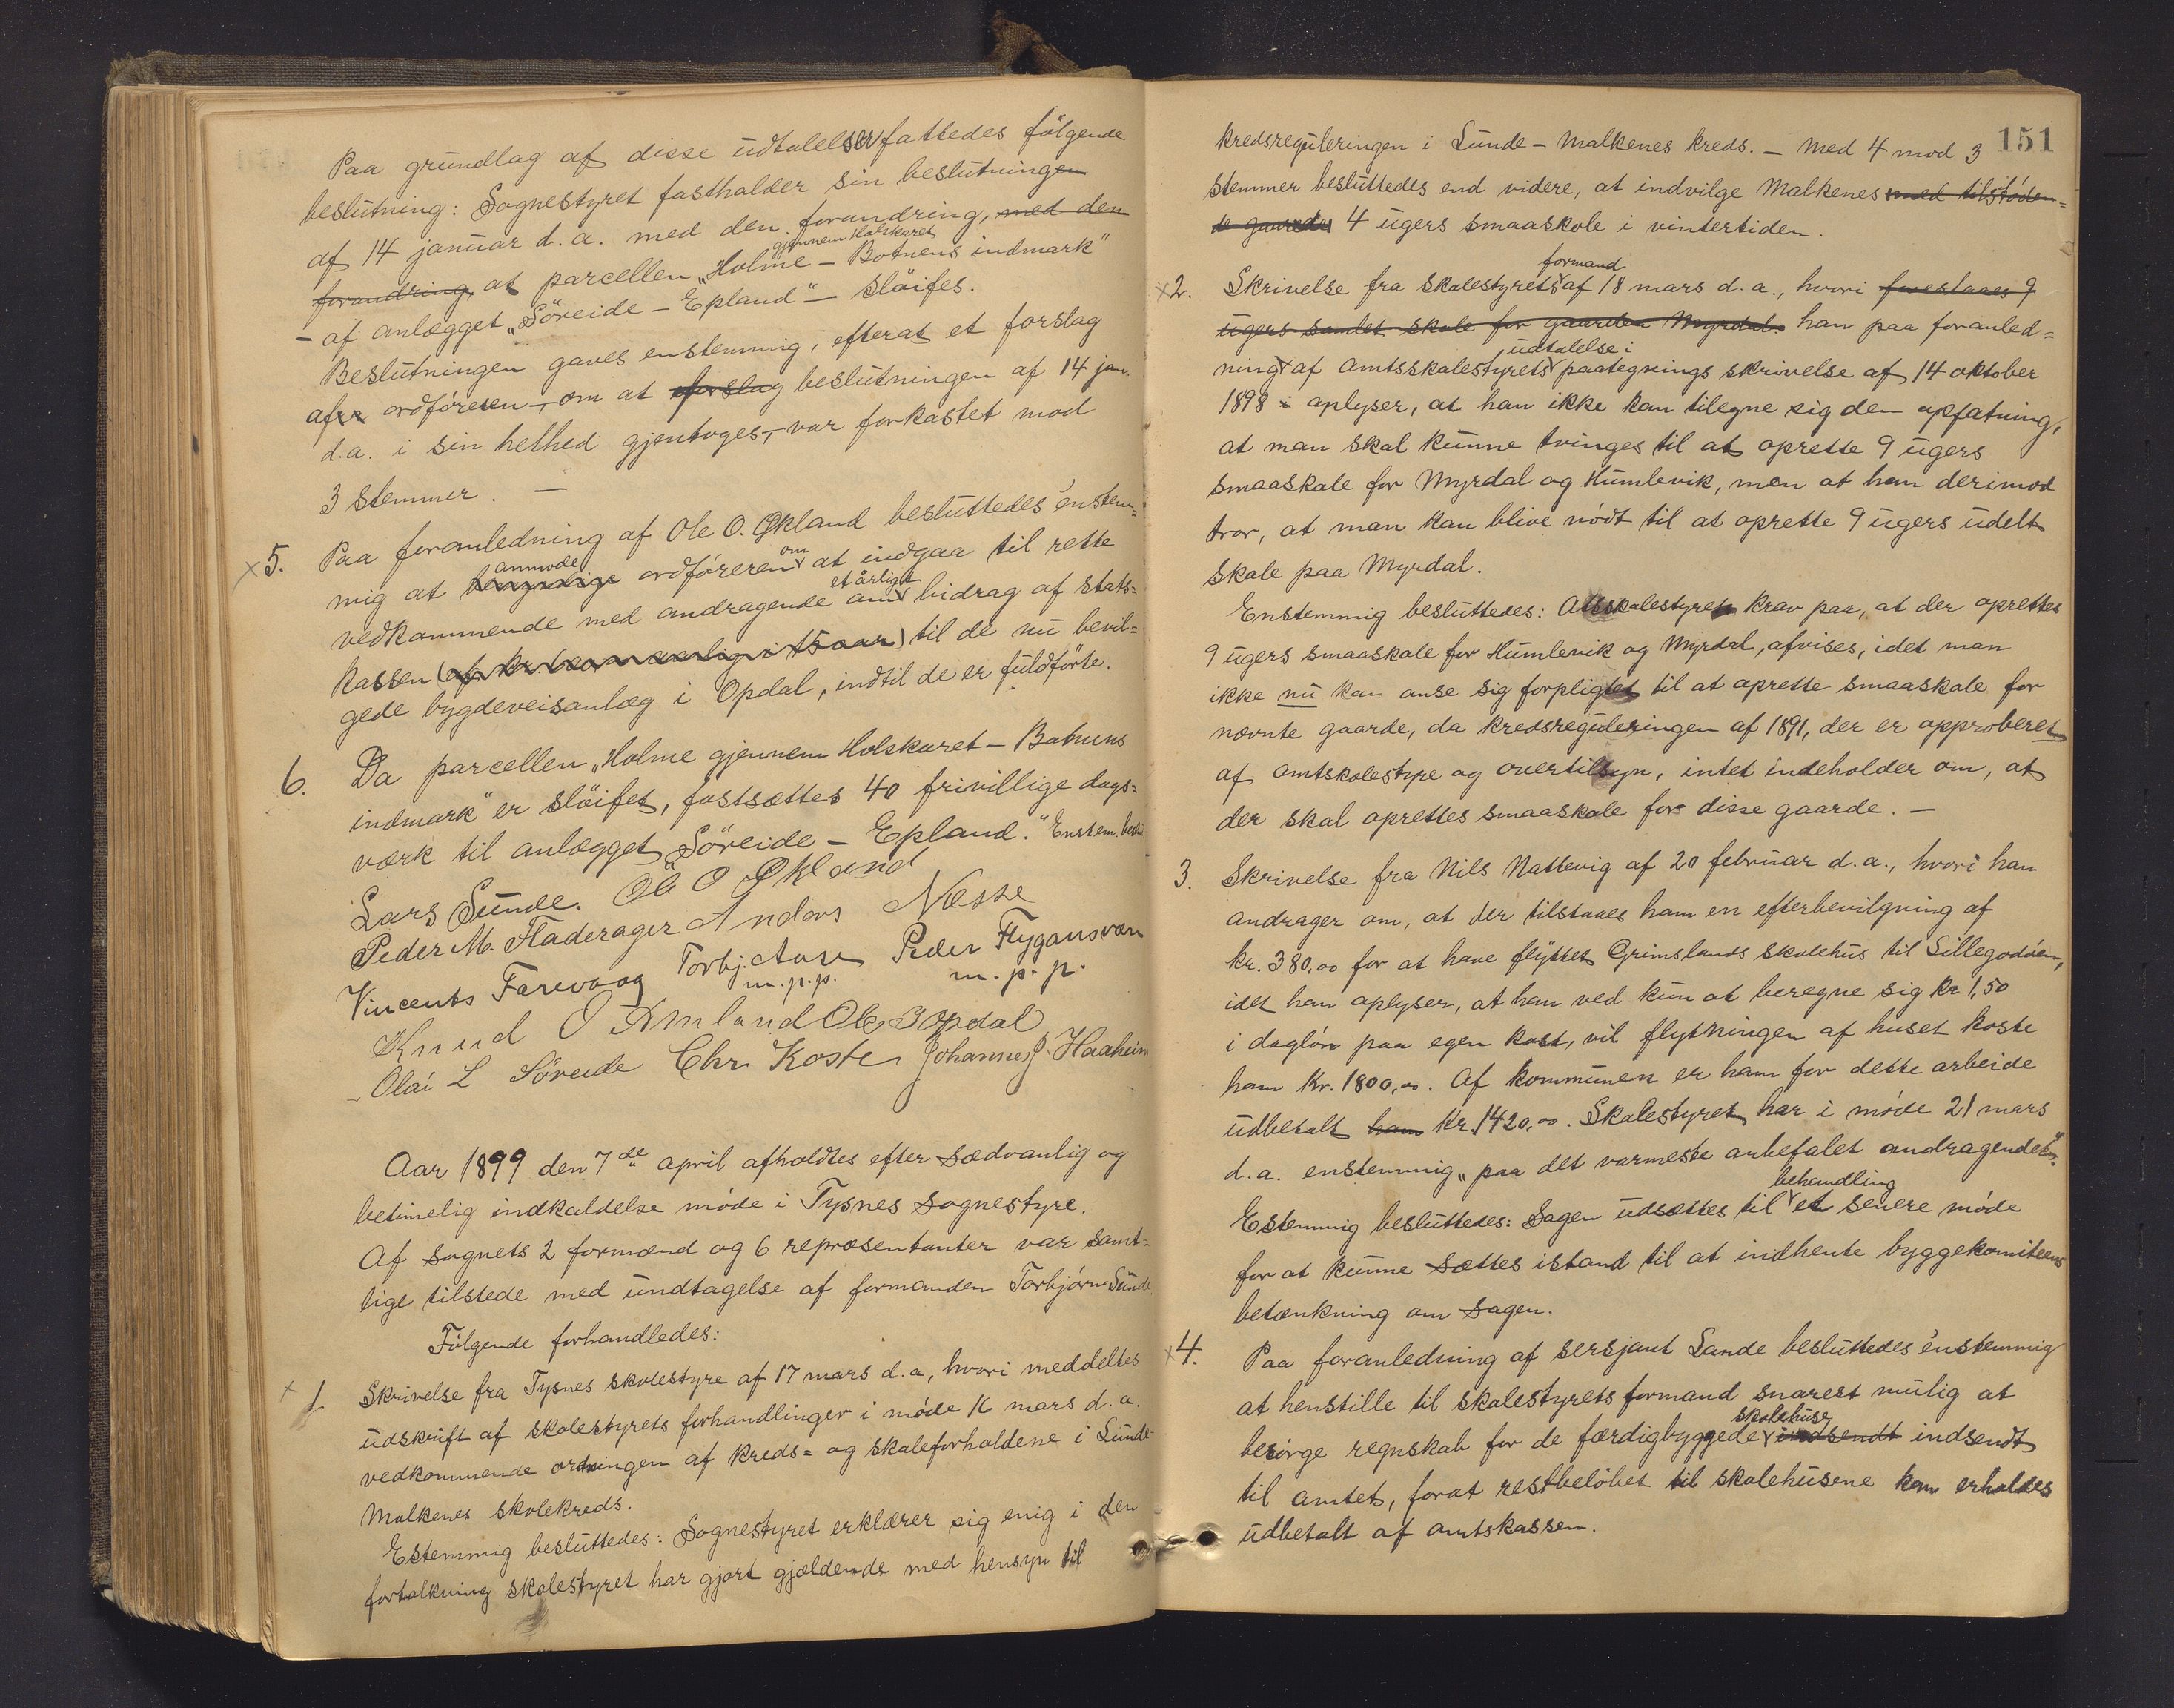 Paa grundlag af disse udtalelser fattedes følgende
beslutning: Sognestyret fastholder sin beslutningen
af 14 januar d. a. med den forandring, med den
forandring, at parcellen „Holme gjennem Holskaret – Botnens indmark"
- af anlægget „Söreide – Epland" – slöifes.
Beslutningen gaves enstemmig, efterat et forslag
af ordföreren –, om at forslag beslutningen af 14 jan.
d.a. i sin helhed gjentoges, – var forkastet mod
3 stemmer. –
×5. Paa foranledning af Ole O. Økland besluttedes enstem=
mig at anmode ordföreren om at indgaa til rette
vedkommende med andragende om et årligt bidrag af stats=
kassen til de nu bevil=
gede bygdeveisanlæg i Opdal, indtil de er fuldförte.
6. Da parcellen „Holme gjennem Holskaret – Botnens
indmark" er slöifet, fastsættes 40 frivillige dags=
værk til anlægget „Söreide – Epland." Enstem. beslu
Lars Sunde. Ole O Økland
Peder M. Fladerager Anders Næsse
Vincents Farevaag Torbj. Aase Peder Flygansvær
m.p.p. m.p.p.
Knud O Amland Ole B Opdal
Olai L Söreide Chr. Koster Johannes J. Haaheim
Aar 1899 den 7de april afholdtes efter sædvanlig og
betimelig indkaldelse möde i Tysnes sognestyre.
Af sognets 2 formænd og 6 repræsentanter var samt=
lige tilstede med undtagelse af formanden Torbjörn Sunde
Fölgende forhandledes:
× 1. Skrivelse fra Tysnes skolestyre af 17 mars d. a, hvori meddeltes
udskrift af skolestyrets forhandlinger i möde 16 mars d. a.
vedkommende ordningen af kreds= og skoleforholdene i Lunde-
Malkenes skolekreds.
Estemmig besluttedes: Sognestyret erklærer sig enig i den
fortolkning skolestyret har gjort gjældende med hensyn til
151
kredsreguleringen i Lunde – Malkenes kreds. – Med 4 mod 3
stemmer besluttedes end videre, at indvilge Malkenes med tilstöden=
de gaarder 4 ugers smaaskole i vintertiden.
×2. Skrivelse fra skolestyrets formand af 18 mars d. a., hvori foreslaaes 9
ugers samlet skole for gaarden Myrdal. han paa foranled=
ning af amtsskolestyrets udtalelse i paategnings skrivelse af 14 oktober
1898 i oplyser, at han ikke kan tilegne sig den opfatning,
at man skal kunne tvinges til at oprette 9 ugers
smaaskole for Myrdal og Humlevik, men at han derimod
tror, at man kan blive nödt til at oprette 9 ugers udelt
skole paa Myrdal.
Enstemmig besluttedes: Atsskolestyrets krav paa, at der oprettes
9 ugers smaaskole for Humlevik og Myrdal, afvises, idet man
ikke nu kan anse sig forpligtet til at oprette smaaskole for
nævnte gaarde, da kredsreguleringen af 1891, der er approberet
af amtskolestyre og overtilsyn, intet indeholder om, at
der skal oprettes smaaskole for disse gaarde. –
3. Skrivelse fra Nils Nattevig af 20 februar d. a., hvori han
andrager om, at der tilstaaes ham en efterbevilgning af
kr. 380,00 for at have flyttet Grimslands skolehus til Lillegodöen,
idet han oplyser, at han ved kun at beregne sig kr 1,50
i daglön paa egen kost, vil flytningen af huset koste
ham kr. 1800,00. Af kommunen er ham for dette arbeide
udbetalt ham kr. 1420,00. Skolestyret har i möde 21 mars
d. a. enstemmig „paa det varmeste anbefalet andragendet".
Estemmig besluttedes: Sagen udsættes til behandling et senere möde
for at kunne sættes istand til at indhente byggekomiteens
betænkning om sagen.
×4. Paa foranledning af sersjant Lande besluttedes enstemmig
at henstille til skolestyrets formand snarest mulig at
besörge regnskab for de færdigbyggede skolehuse indsendt indsendt
til amtet, forat restbelöbet til skolehusene kan erholdes
udbetalt af amtskassen.